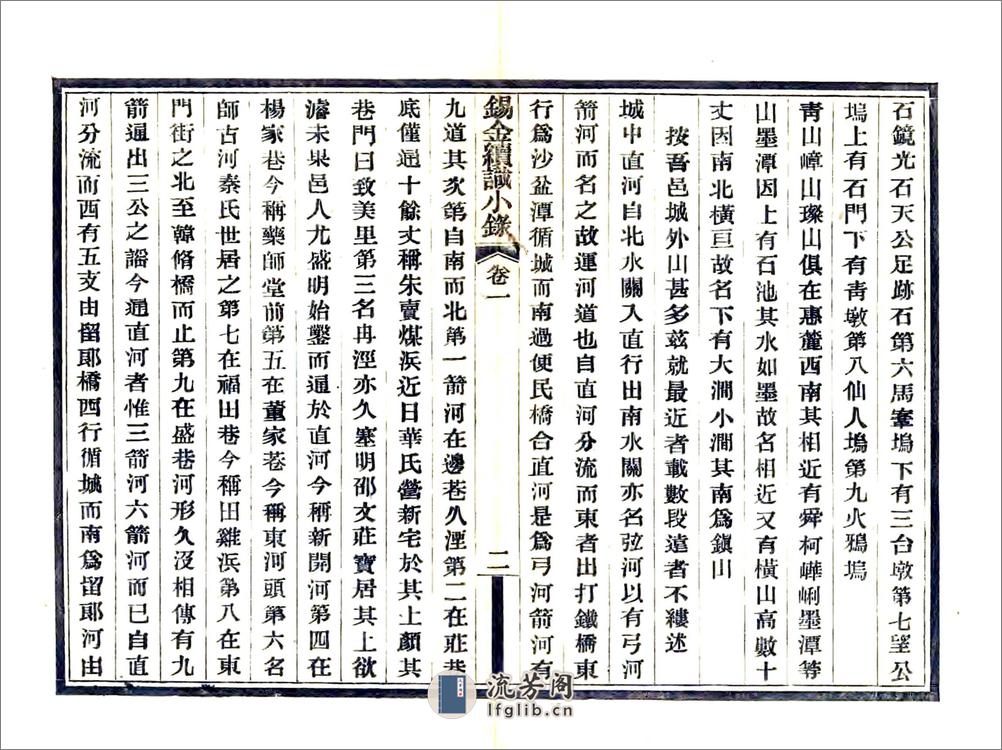 石鏡光石天公足跡石第六馬牽塢下有三台墩第七望公
塢上有石門下有靑墩第八仙人塢第九火鴉塢
靑山嶂山璨山俱在惠麓西南其相近有舜柯嶂峢墨潭等
山墨潭因上有石池其水如墨故名相近又有橫山高數十
丈因南北橫亘故名下有大澗小澗其南爲鎭山
按吾邑城外山甚多玆就最近者載數段遠者不縷述
城中直河自北水關入直行出南水關亦名弦河以有弓河
箭河而名之故運河道也自直河分流而東者出打鐵橋東
行爲沙盆潭循城而南過便民橋合直河是爲弓河箭河有
錫金續識小錄
卷一
二
九道其次第自南而北第一箭河在邊巷久湮第二在莊巷
底僅通十餘丈稱朱賣煤浜近日華氏營新宅於其上顏其
巷門曰致美里第三名冉涇亦久塞明邵文莊寶居其上欲
濬未果邑人尤盛明始鑿而通於直河今稱新開河第四在
楊家巷今稱藥師堂前第五在董家巷今稱東河頭第六名
師古河泰氏世居之第七在福田巷今稱田雞浜第八在東
門街之北至韓脩橋而止第九在盛巷河形久沒相傳有九
箭通出三公之謠今通直河者惟三箭河六箭河而已自直
河分流而西有五支由留郞橋西行循城而南爲留郞河由
流芳阁
lfglib.cn